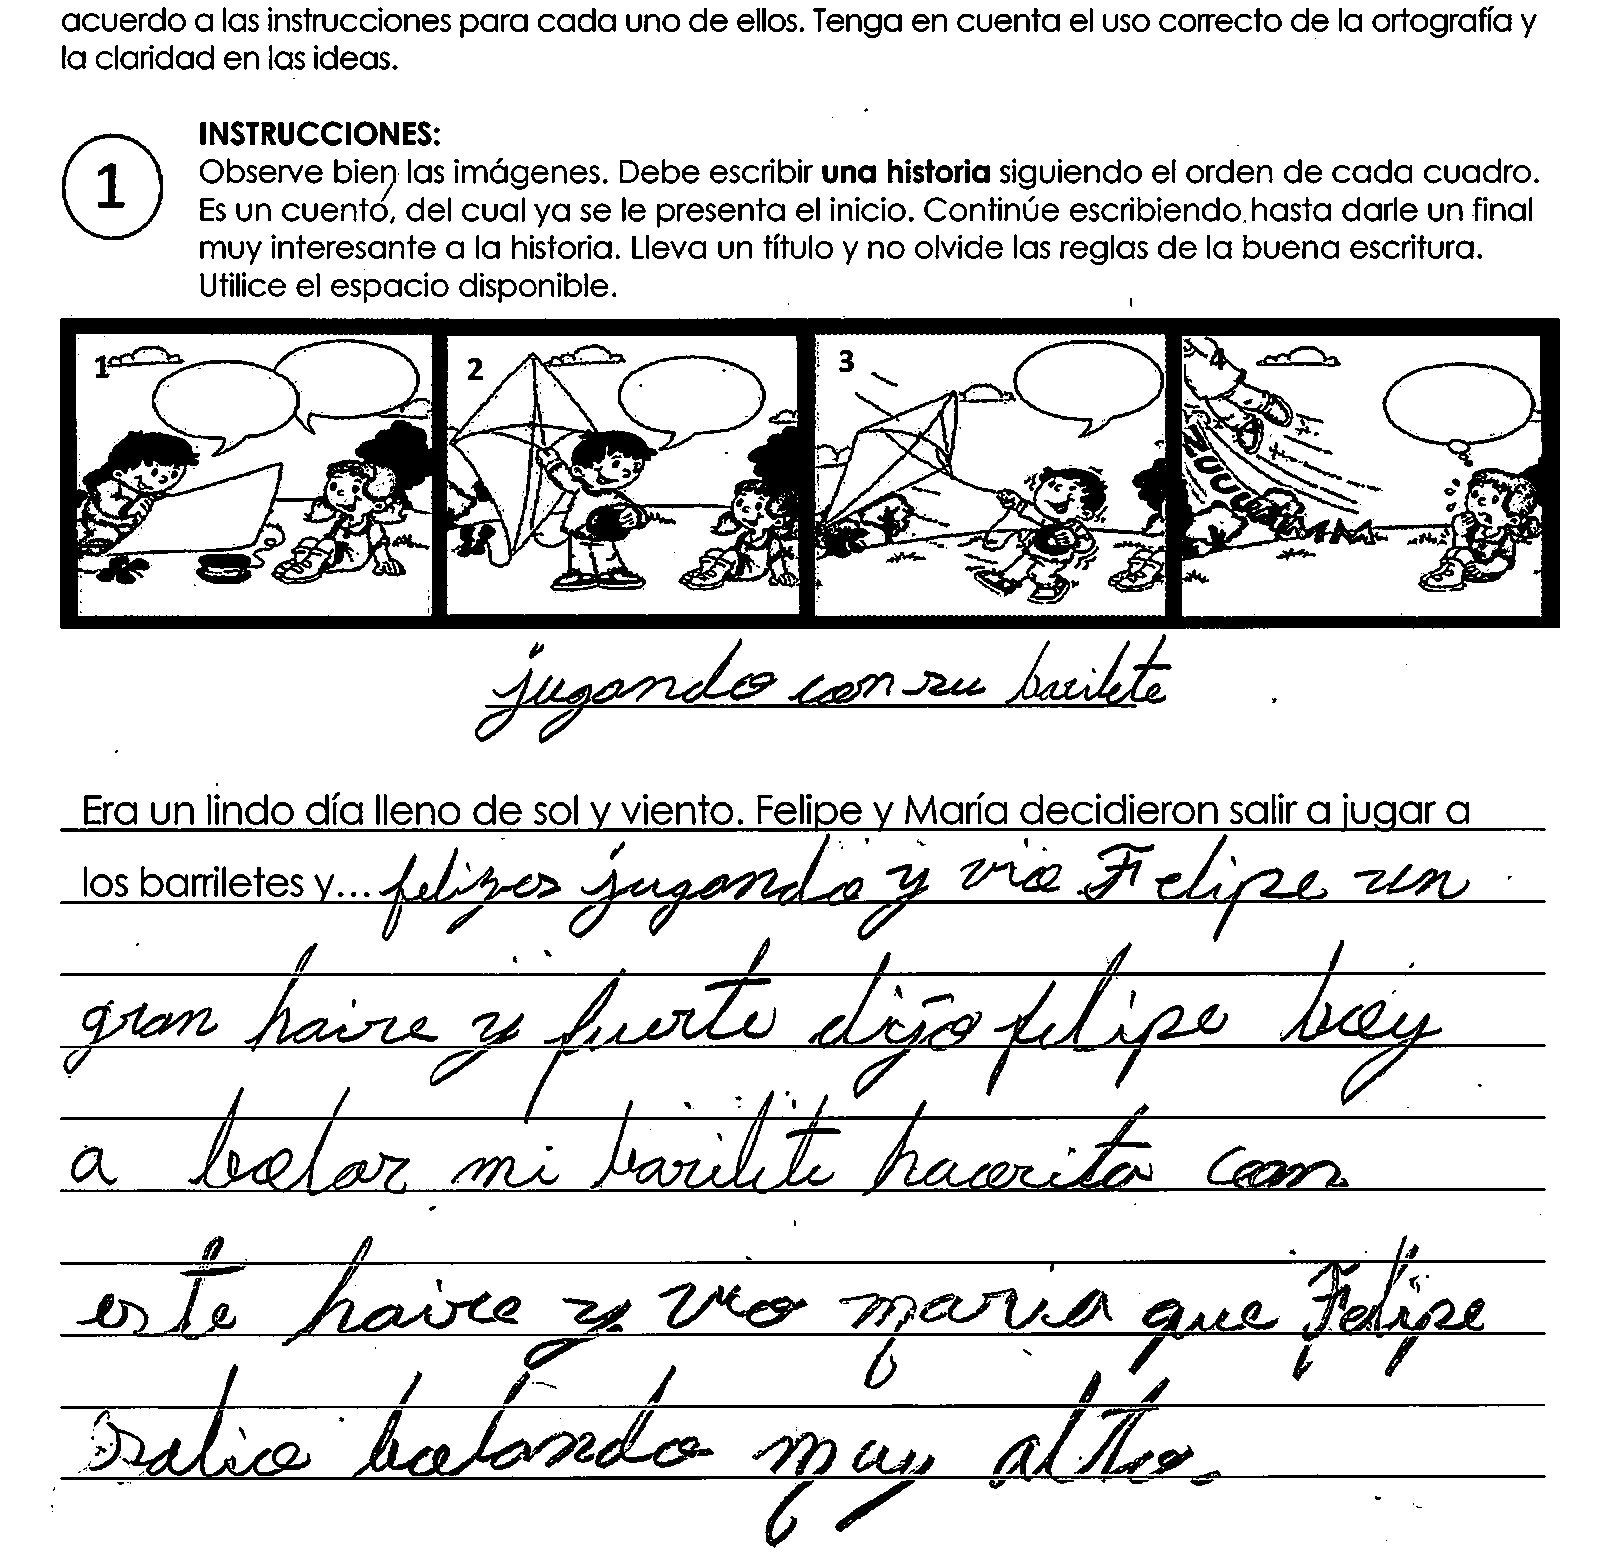 acuerdo a las instrucciones para cada uno de ellos. Tenga en cuenta el uso correcto de la ortografía y
la claridad en las ideas.
INSTRUCCIONES:
1
Observe bien las imágenes. Debe escribir una historia siguiendo el orden de cada cuadro.
Es un cuento, del cual ya se le presenta el inicio. Continúe escribiendo hasta darle un final
muy interesante a la historia. Lleva un título y no olvide las reglas de la buena escritura.
Utilice el espacio disponible.
1 2 3 4
ZUUUU
jugando con su barilete
Era un lindo día lleno de sol y viento. Felipe y María decidieron salir a jugar a
los barriletes y... felizes jugando y vio Felipe un
gran haire y fuerte dijo felipe boy
a bolar mi barilete haorita con
este haire y vio maria que Felipe
salio bolando muy alto.